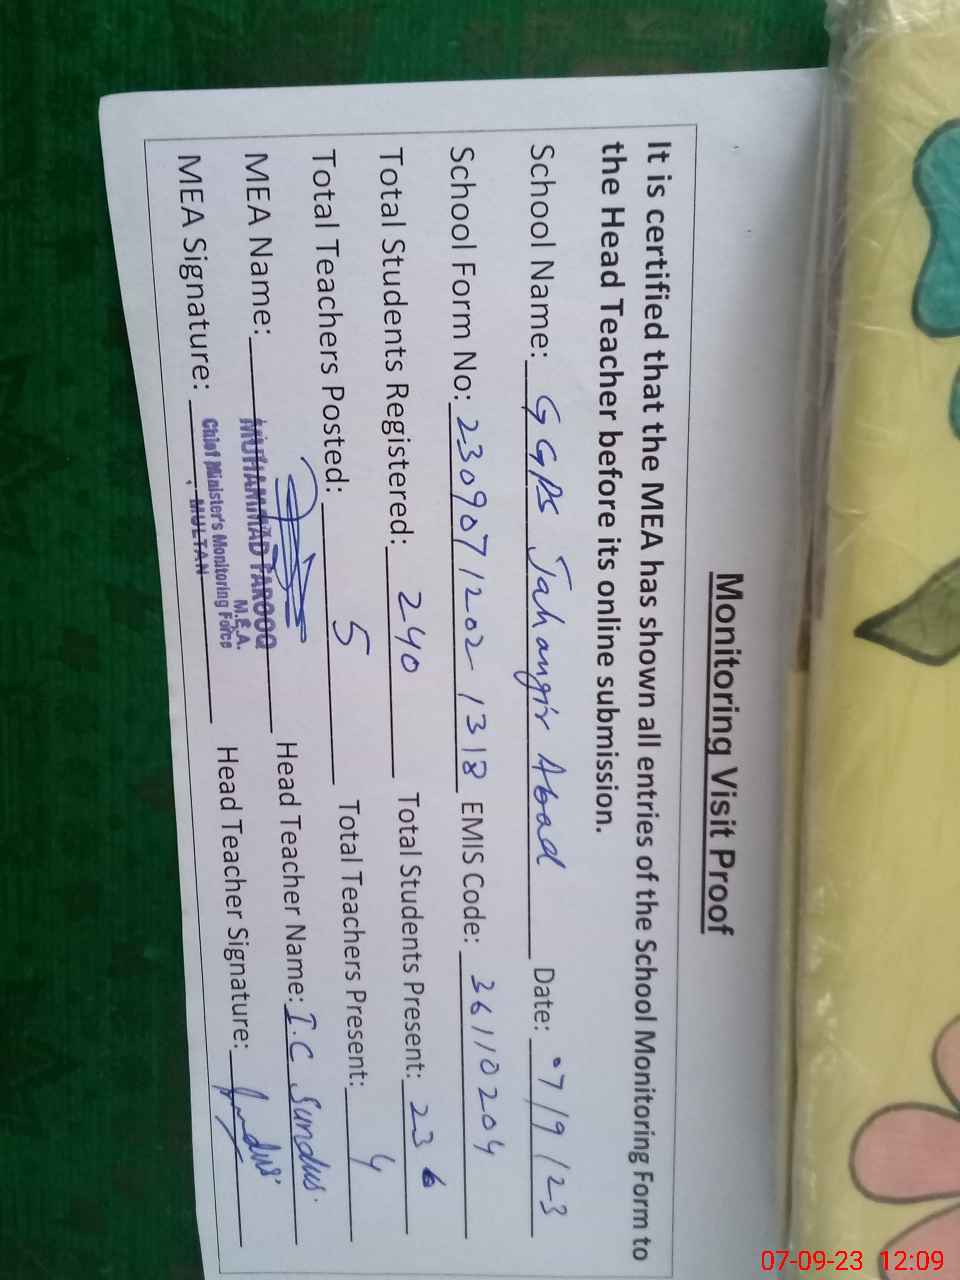 Monitoring Visit Proof
It is certified that the MEA has shown all entries of the School Monitoring Form to
the Head Teacher before its online submission.
School Name: GGPS Jahangir Abad Date: 07/9/23
School Form No: 230907 1202 1318 EMIS Code: 36110204
Total Students Registered: 240 Total Students Present: 236
Total Teachers Posted: 5 Total Teachers Present: 4
MEA Name: MUHAMMAD FAROOQ Head Teacher Name: I.C Sundus.
M.E.A.
MEA Signature: Chief Minister's Monitoring Force Head Teacher Signature: Sundus.
MULTAN
07-09-23 12:09